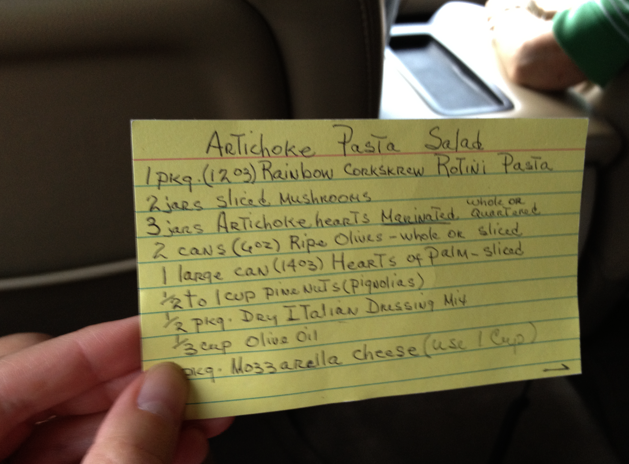 Artichoke Pasta Salad
1 pkg. (12 oz) Rainbow Corkskrew Rotini Pasta
2 jars sliced Mushrooms
3 jars Artichoke hearts Marinated whole or quartered
2 cans (4oz) Ripe Olives - whole or sliced
1 large can (14oz) Hearts of Palm - sliced
1/2 to 1 cup pine nuts (piquolias)
1/2 pkg. Dry Italian Dressing Mix
1/3 cup Olive Oil
pkg. Mozzarella cheese (use 1 Cup)
→